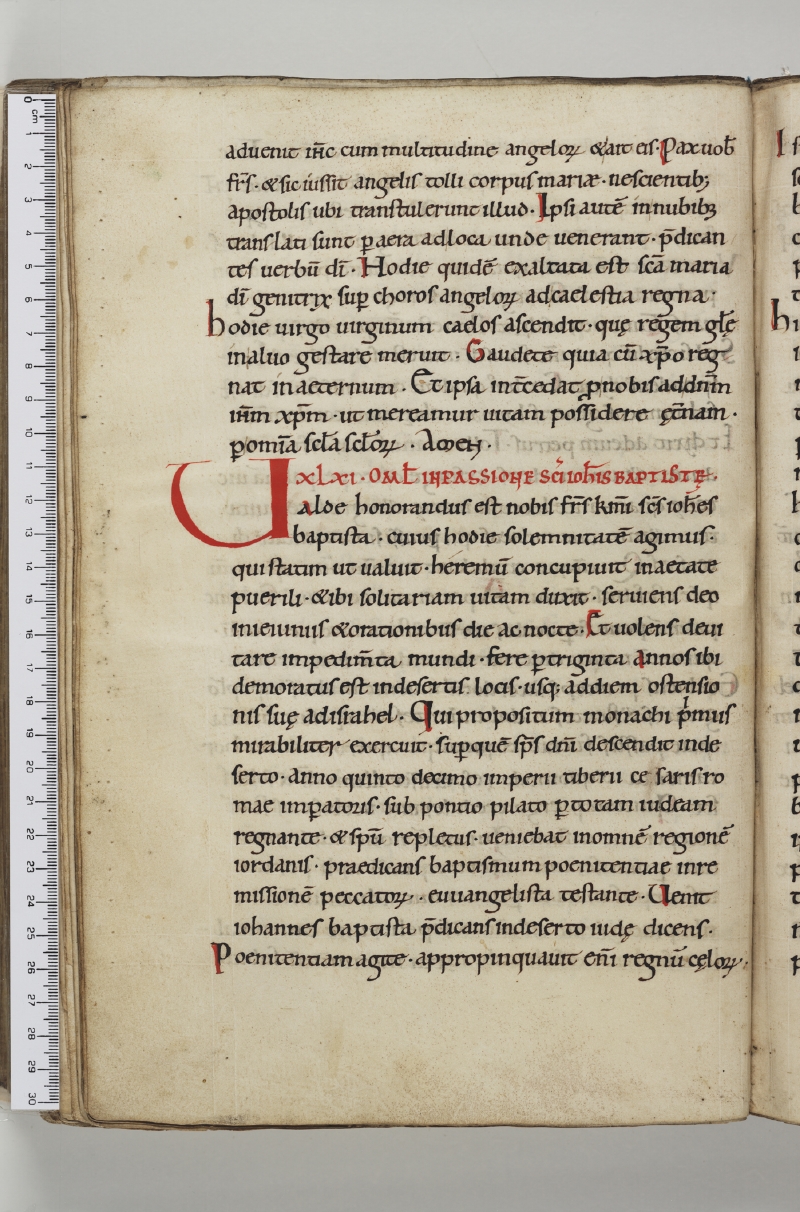 aduenit ihc cum multitudine angeloꝝ & ait eis. Pax uob̄
fr̄s. & sic iussit angelis tolli corpus mariæ. nescientibꝫ
apostolis ubi transtulerunt illud. Ipsi autē in nubibꝫ
translati sunt ꝑ aera ad loca unde uenerant. p̄dican
tes uerbū dī. Hodie quidē exaltata est scā maria
dī genitrix suꝑ choros angeloꝝ ad caelestia regna.
hodie uirgo uirginum caelos ascendit. quę regem glę
in aluo gestare meruit. Gaudete quia cū xp̄o reg
nat in aeternum. Et ipsa int̄cedat ꝓ nobis ad dn̄m
ih̄m xp̄m. ut mereamur uitam possidere ęt̄nam.
ꝑ om̄ia sc̄la sc̄loꝝ. Amen.
XLXI. OML̄ IN PASSIONE SC̄I IOH̄IS BAPTISTĘ.
Ualde honorandus est nobis fr̄s km̄i sc̄s ioh̄es
baptista. cuius hodie solemnitatē agimus.
qui statim ut ualuit. heremū concupiuit in aetate
puerili. & ibi solitariam uitam duxit. seruiens deo
in ieiuniis & orationibus die ac nocte. Et uolens deui
tare impedim̄ta mundi. fere ꝑ triginta annos ibi
demoratus est in desertis locis. usqꝫ ad diem ostensio
nis suę ad israhel. Qui propositum monachi p̄mus
mirabiliter exercuit. suꝑ quē sp̄s dn̄i descendit in de
serto. anno quinto decimo imperii tiberii ce saris ro
mae imꝑatoris. sub pontio pilato ꝑ totam iudeam
regnante. & sp̄u repletus. ueniebat in omnē regionē
iordanis. praedicans baptismum poenitentiae in re
missionē peccatoꝝ. euuangelista testante. Uenit
iohannes baptista p̄dicans in deserto iudę dicens.
Poenitentiam agite. appropinquauit enī regnū cęloꝝ.